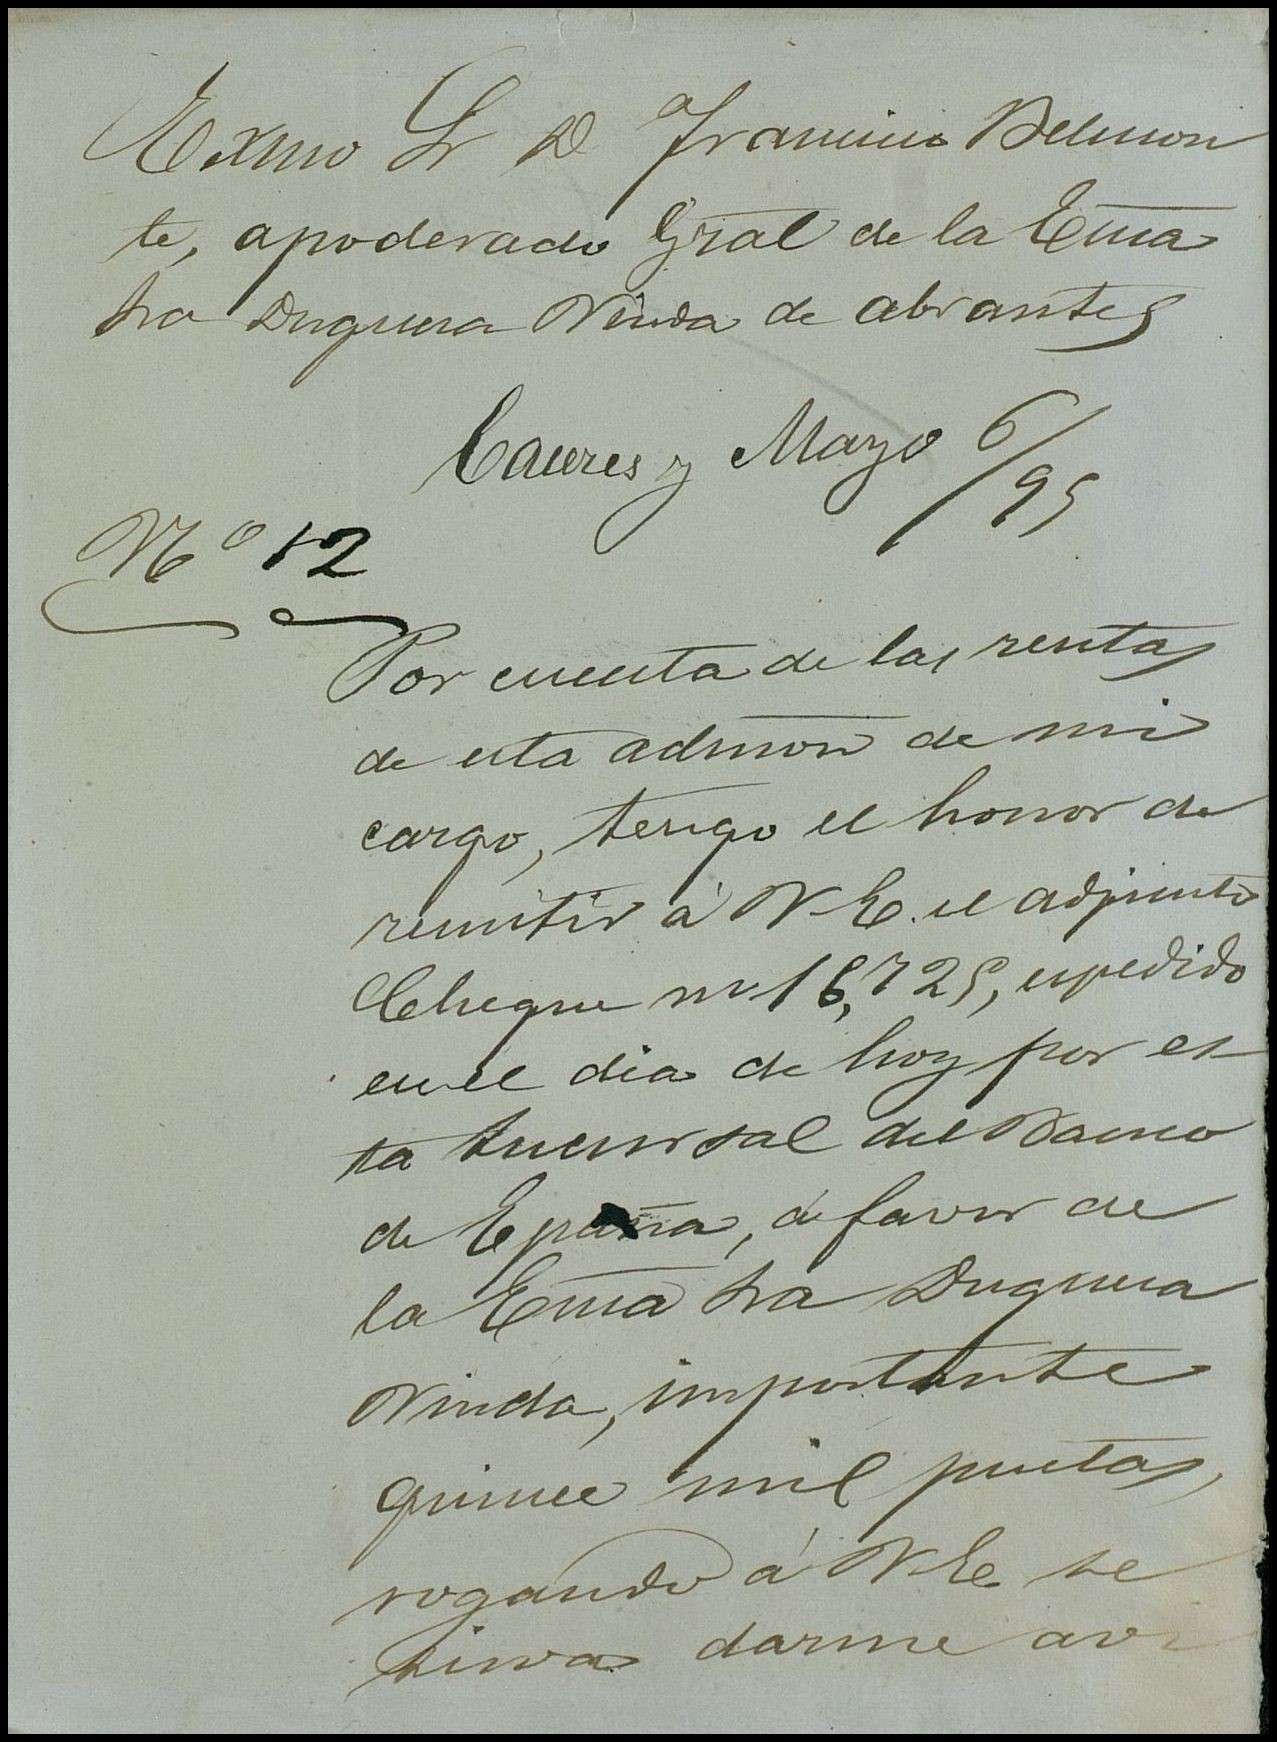 Exmo Sr D Francisco Belmon
te, apoderado Gral de la Ema
Sra Duquesa Viuda de Abrantes
Caceres y Mayo 6/95
Nº 12
Por cuenta de las rentas
de esta admon de mi
cargo, tengo el honor de
remitir á V.E. el adjunto
Cheque nº 16,725, espedido
en el dia de hoy por es
ta Sucursal del Banco
de España, á favor de
la Ema Sra Duquesa
Viuda, importante
quince mil pesetas,
rogando á V.E. se
sirva darme avi